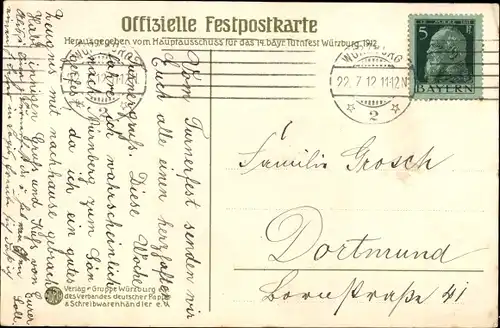 Offizielle Festpostkarte
Herausgegeben vom Hauptausschuss für das 14. bayr. Turnfest Würzburg, 1912
WÜRZBURG
22.7.12.11-12.N
2
5
BAYERN
Vom Turnerfest senden wir
Euch alle einen herzhaften
Turnergruß. Diese Woche
fahre ich wahrscheinlich
nach Nürnberg zum Sän-
gerfest, da ich ein gutes
Zeugnis mit nachhause gebracht
Gruß und Kuß von Eurer
Familie Grosch
Dortmund
Bornstraße 41
Verlag: Gruppe Würzburg
des Verbandes deutscher Papier-
& Schreibwarenhändler e.V.